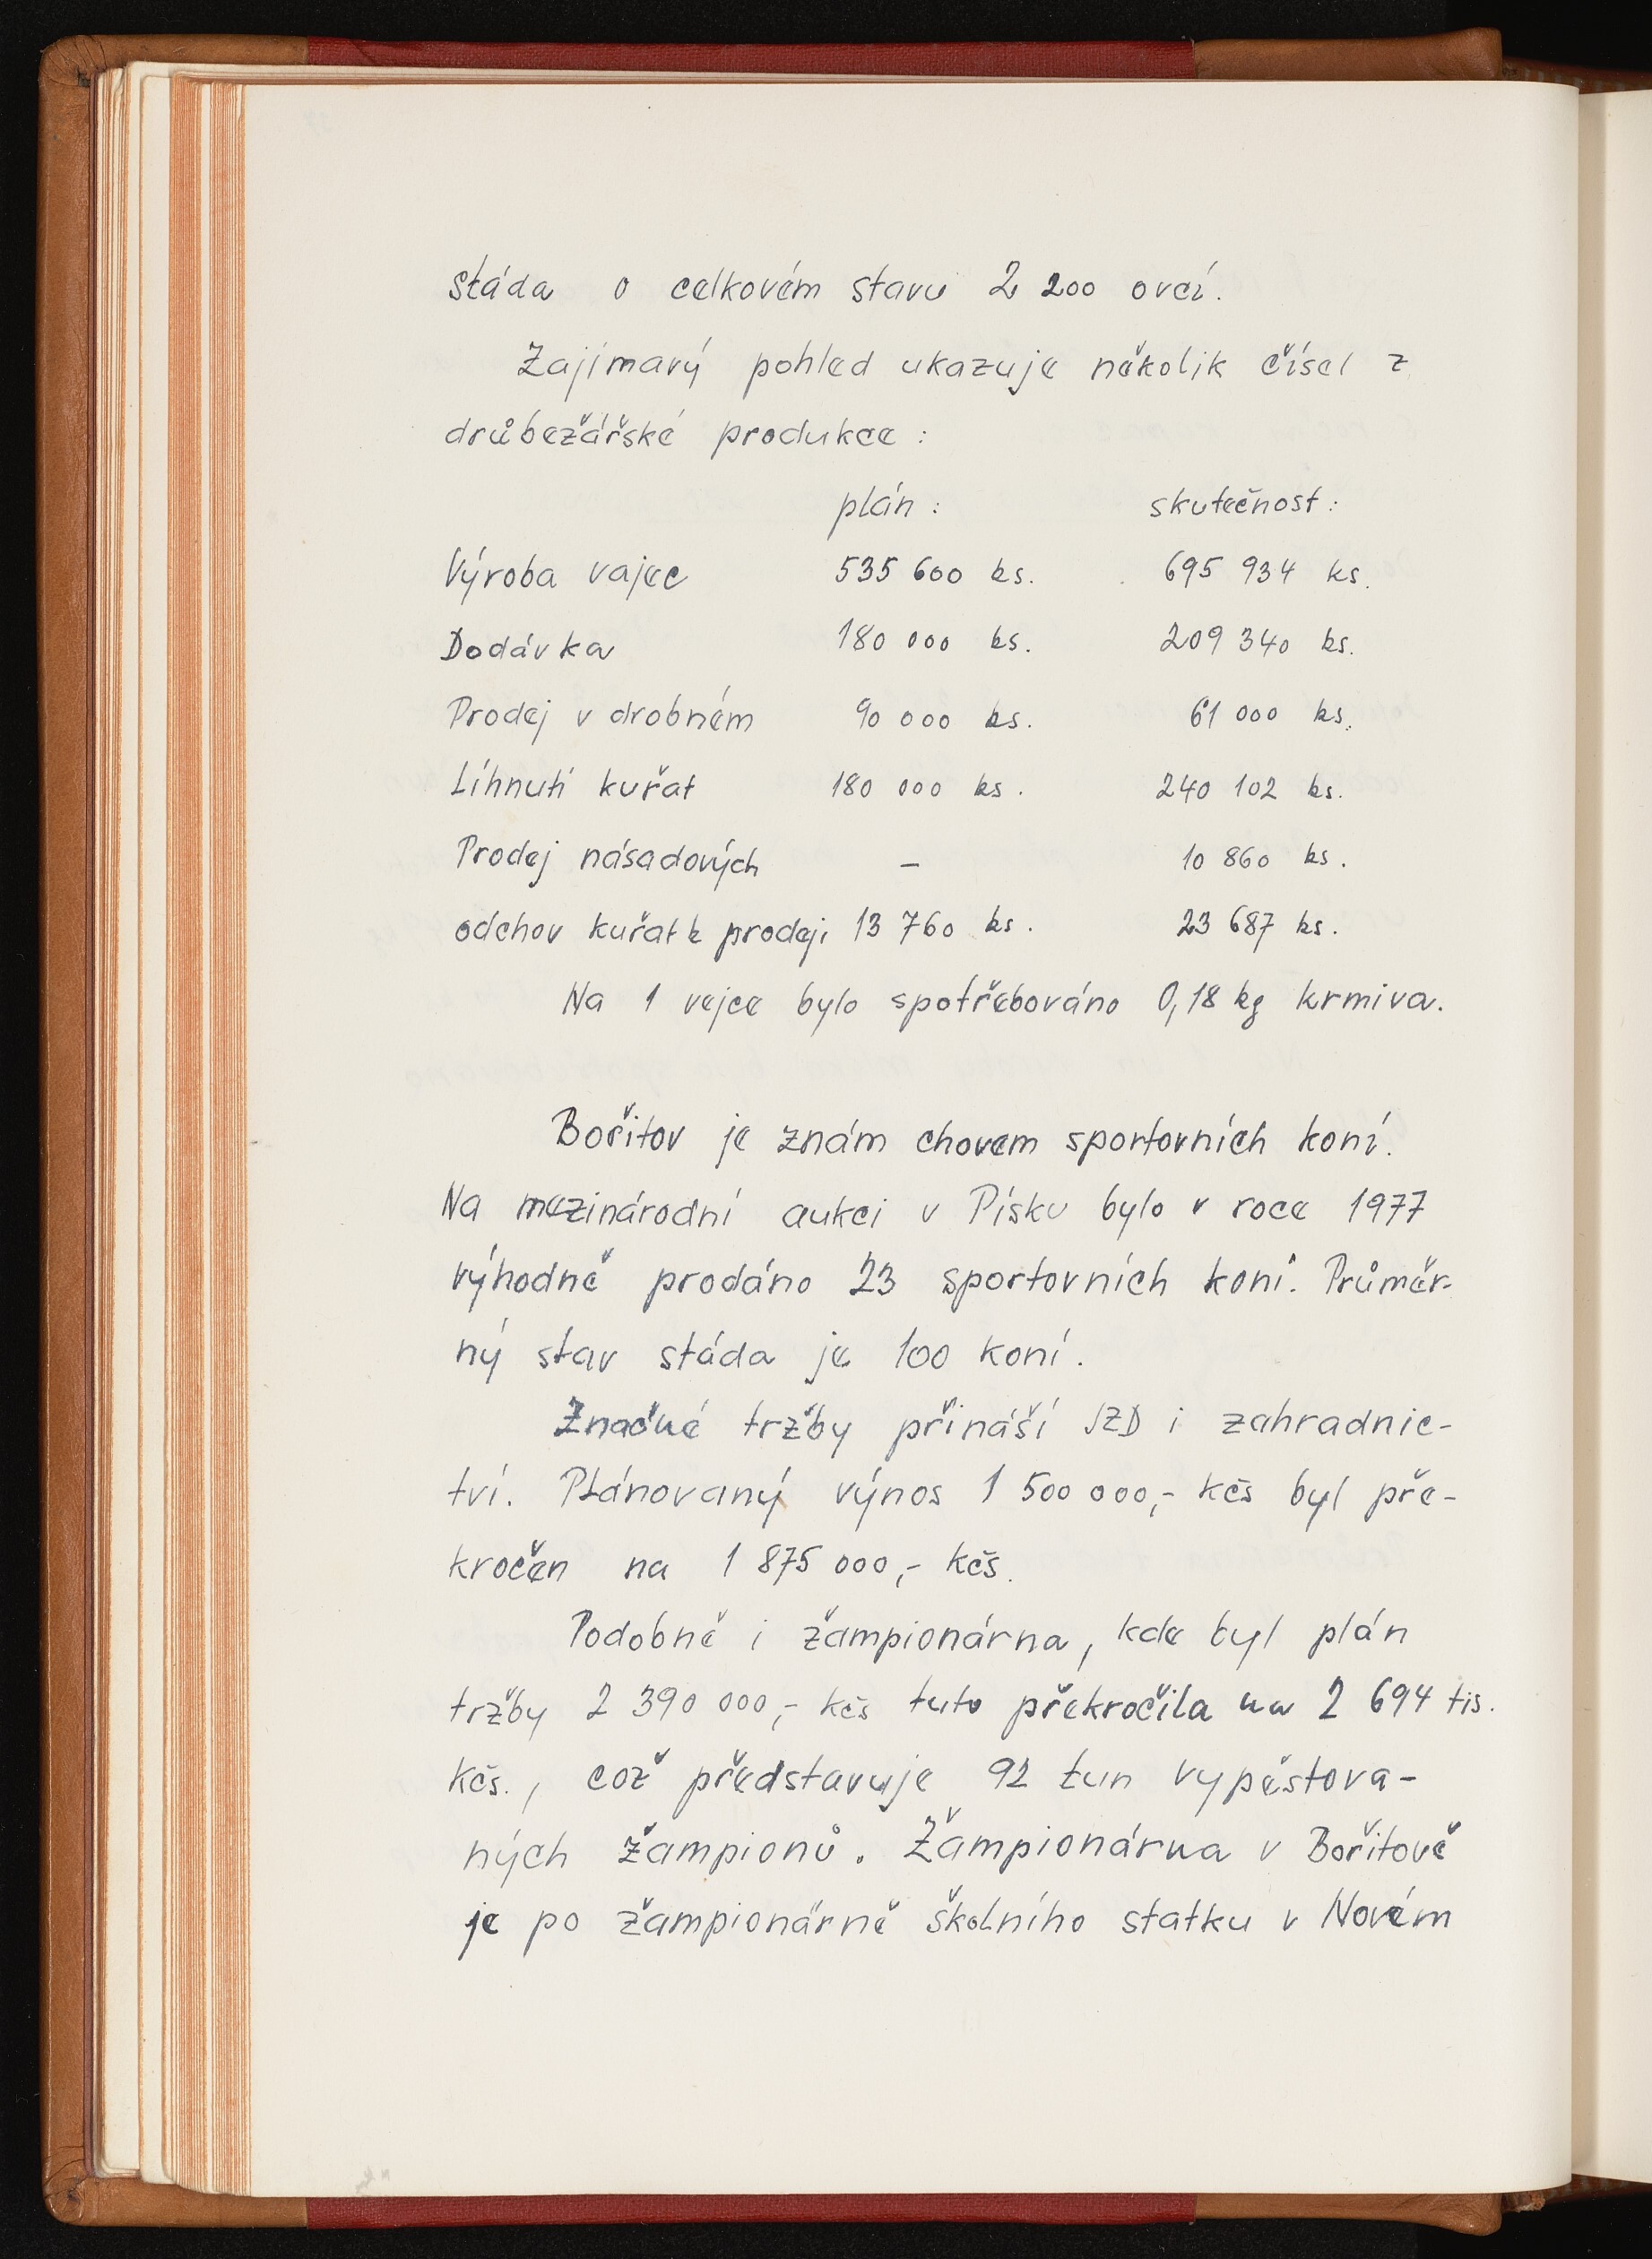 stáda o celkovém stavu 2 200 ovcí.
Zajímavý pohled ukazuje několik čísel z
drůbežářské produkce :
plán : skutečnost :
Výroba vajec 535 600 ks. 695 934 ks.
Dodávka 180 000 ks. 209 340 ks.
Prodej v drobném 90 000 ks. 61 000 ks.
Líhnutí kuřat 180 000 ks. 240 102 ks.
Prodej násadových - 10 860 ks.
odchov kuřat k prodeji 13 760 ks. 23 687 ks.
Na 1 vejce bylo spotřebováno 0,18 kg krmiva.
Bořitov je znám chovem sportovních koní.
Na mezinárodní aukci v Písku bylo v roce 1977
výhodně prodáno 23 sportovních koní. Průměr-
ný stav stáda je 100 koní.
Značné tržby přináší JZD i zahradnic-
tví. Plánovaný výnos 1 500 000,- kčs byl pře-
kročen na 1 875 000,- kčs.
Podobně i žampionárna, kde byl plán
tržby 2 390 000,- kčs tuto překročila na 2 694 tis.
kčs., což představuje 92 tun vypěstova-
ných žampionů. Žampionárna v Bořitově
je po žampionárně školního statku v Novém